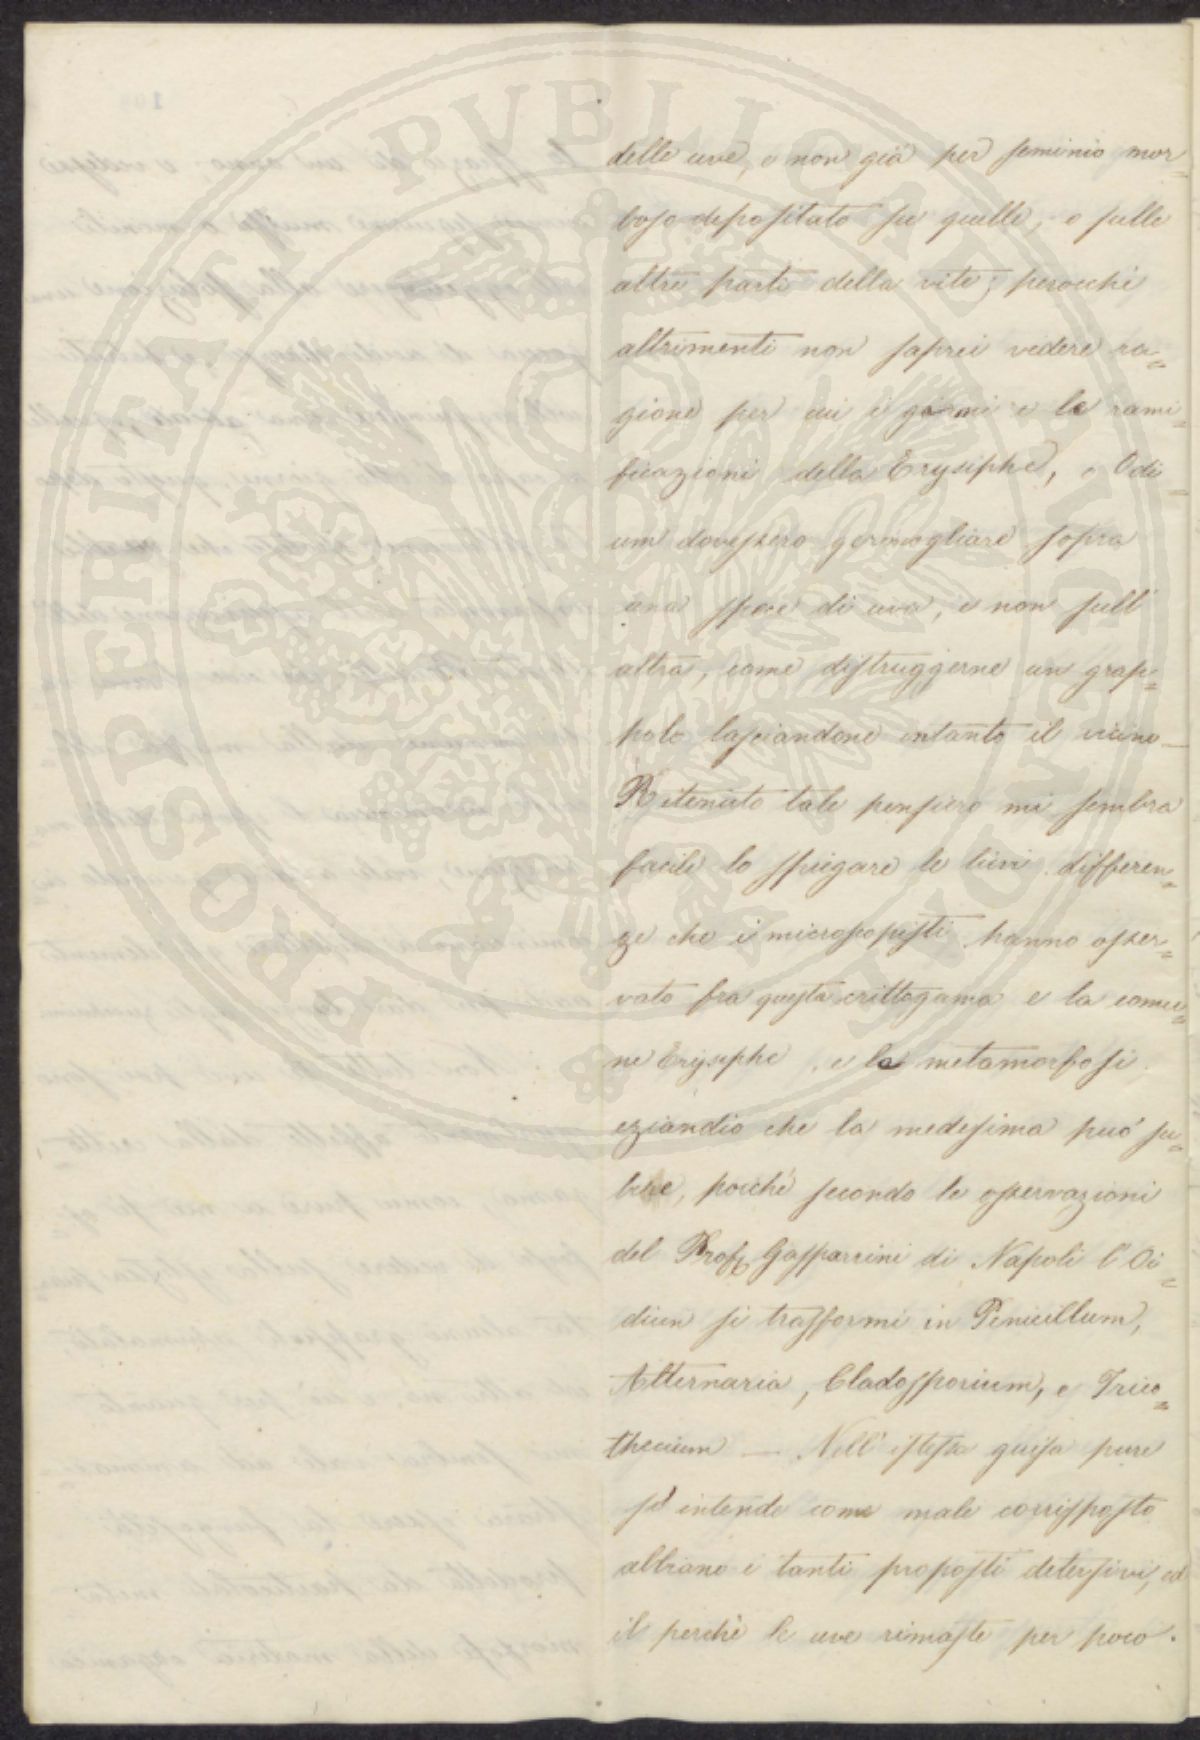 delle uve, e non già per seminio mor=
boso depositato su quelle, o sulle
altre parti della vite; perocchè
altrimenti non saprei vedere ra=
gione per cui i germi e le rami=
ficazioni della Erysiphe, o Odi=
um dovessero germogliare sopra
una specie di uva, e non sull'
altra, come distruggerne un grap=
polo lasciandone intanto il vicino —
Ritenuto tale pensiero mi sembra
facile lo spiegare le lievi differen=
ze che i microscopisti hanno osser=
vato fra questa crittogama e la comu=
ne Erysiphe, e la metamorfosi
eziandio che la medesima può su=
bire, poichè secondo le osservazioni
del Prof. Gasparrini di Napoli l'Oi=
dium si trasformi in Penicillum,
Alternaria, Cladosporium, e Trico=
thecium — Nell'istessa guisa pure
s'intende come male corrisposto
abbiano i tanti proposti detersivi, ed
il perchè le uve rimaste per poco
PROSPERITATI PUBLICAE AUGENDAE